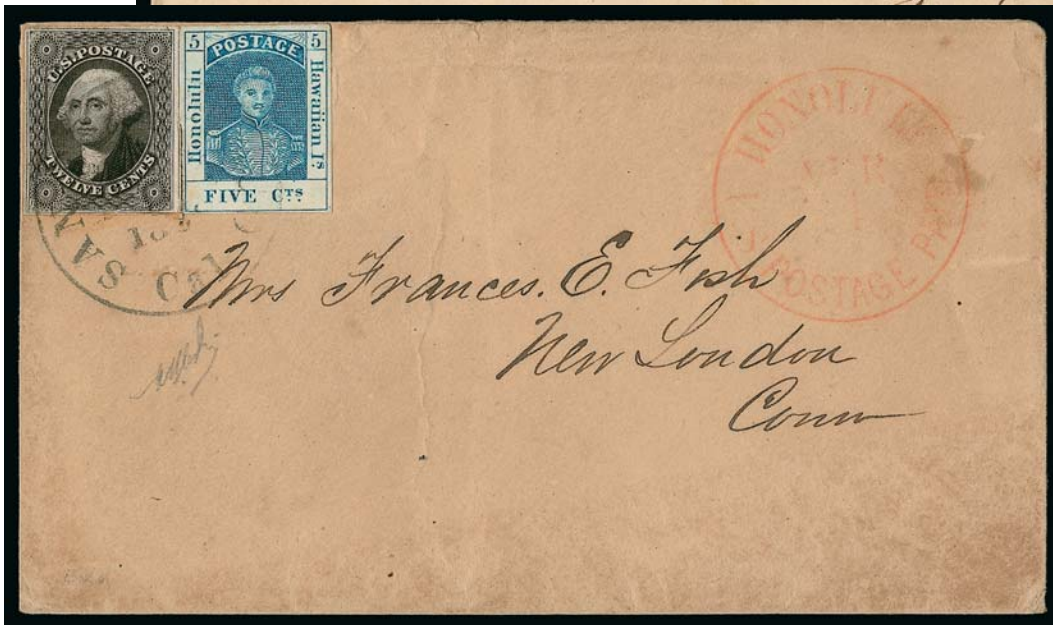 U.S. POSTAGE
TWELVE CENTS
5 POSTAGE 5
Honolulu
Hawaiian Is
FIVE CTS
HONOLULU
POSTAGE PAID
SAN
Cal
Mrs Frances. E. Fish
New London
Conn